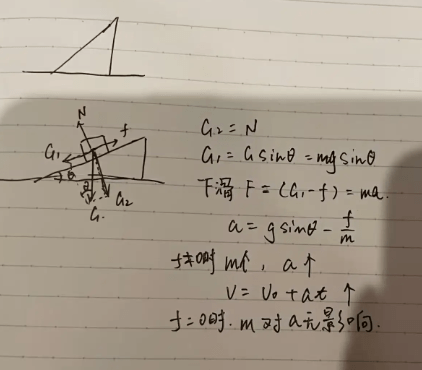 N
f
G₁
θ
θ
G₂
G
G₂ = N
G₁ = G sinθ = mg sinθ
下滑 F = (G₁ - f) = ma
a = g sinθ - f/m
f≠0时 m↑, a↑
V = V₀ + at ↑
f = 0时. m 对 a 无影响.